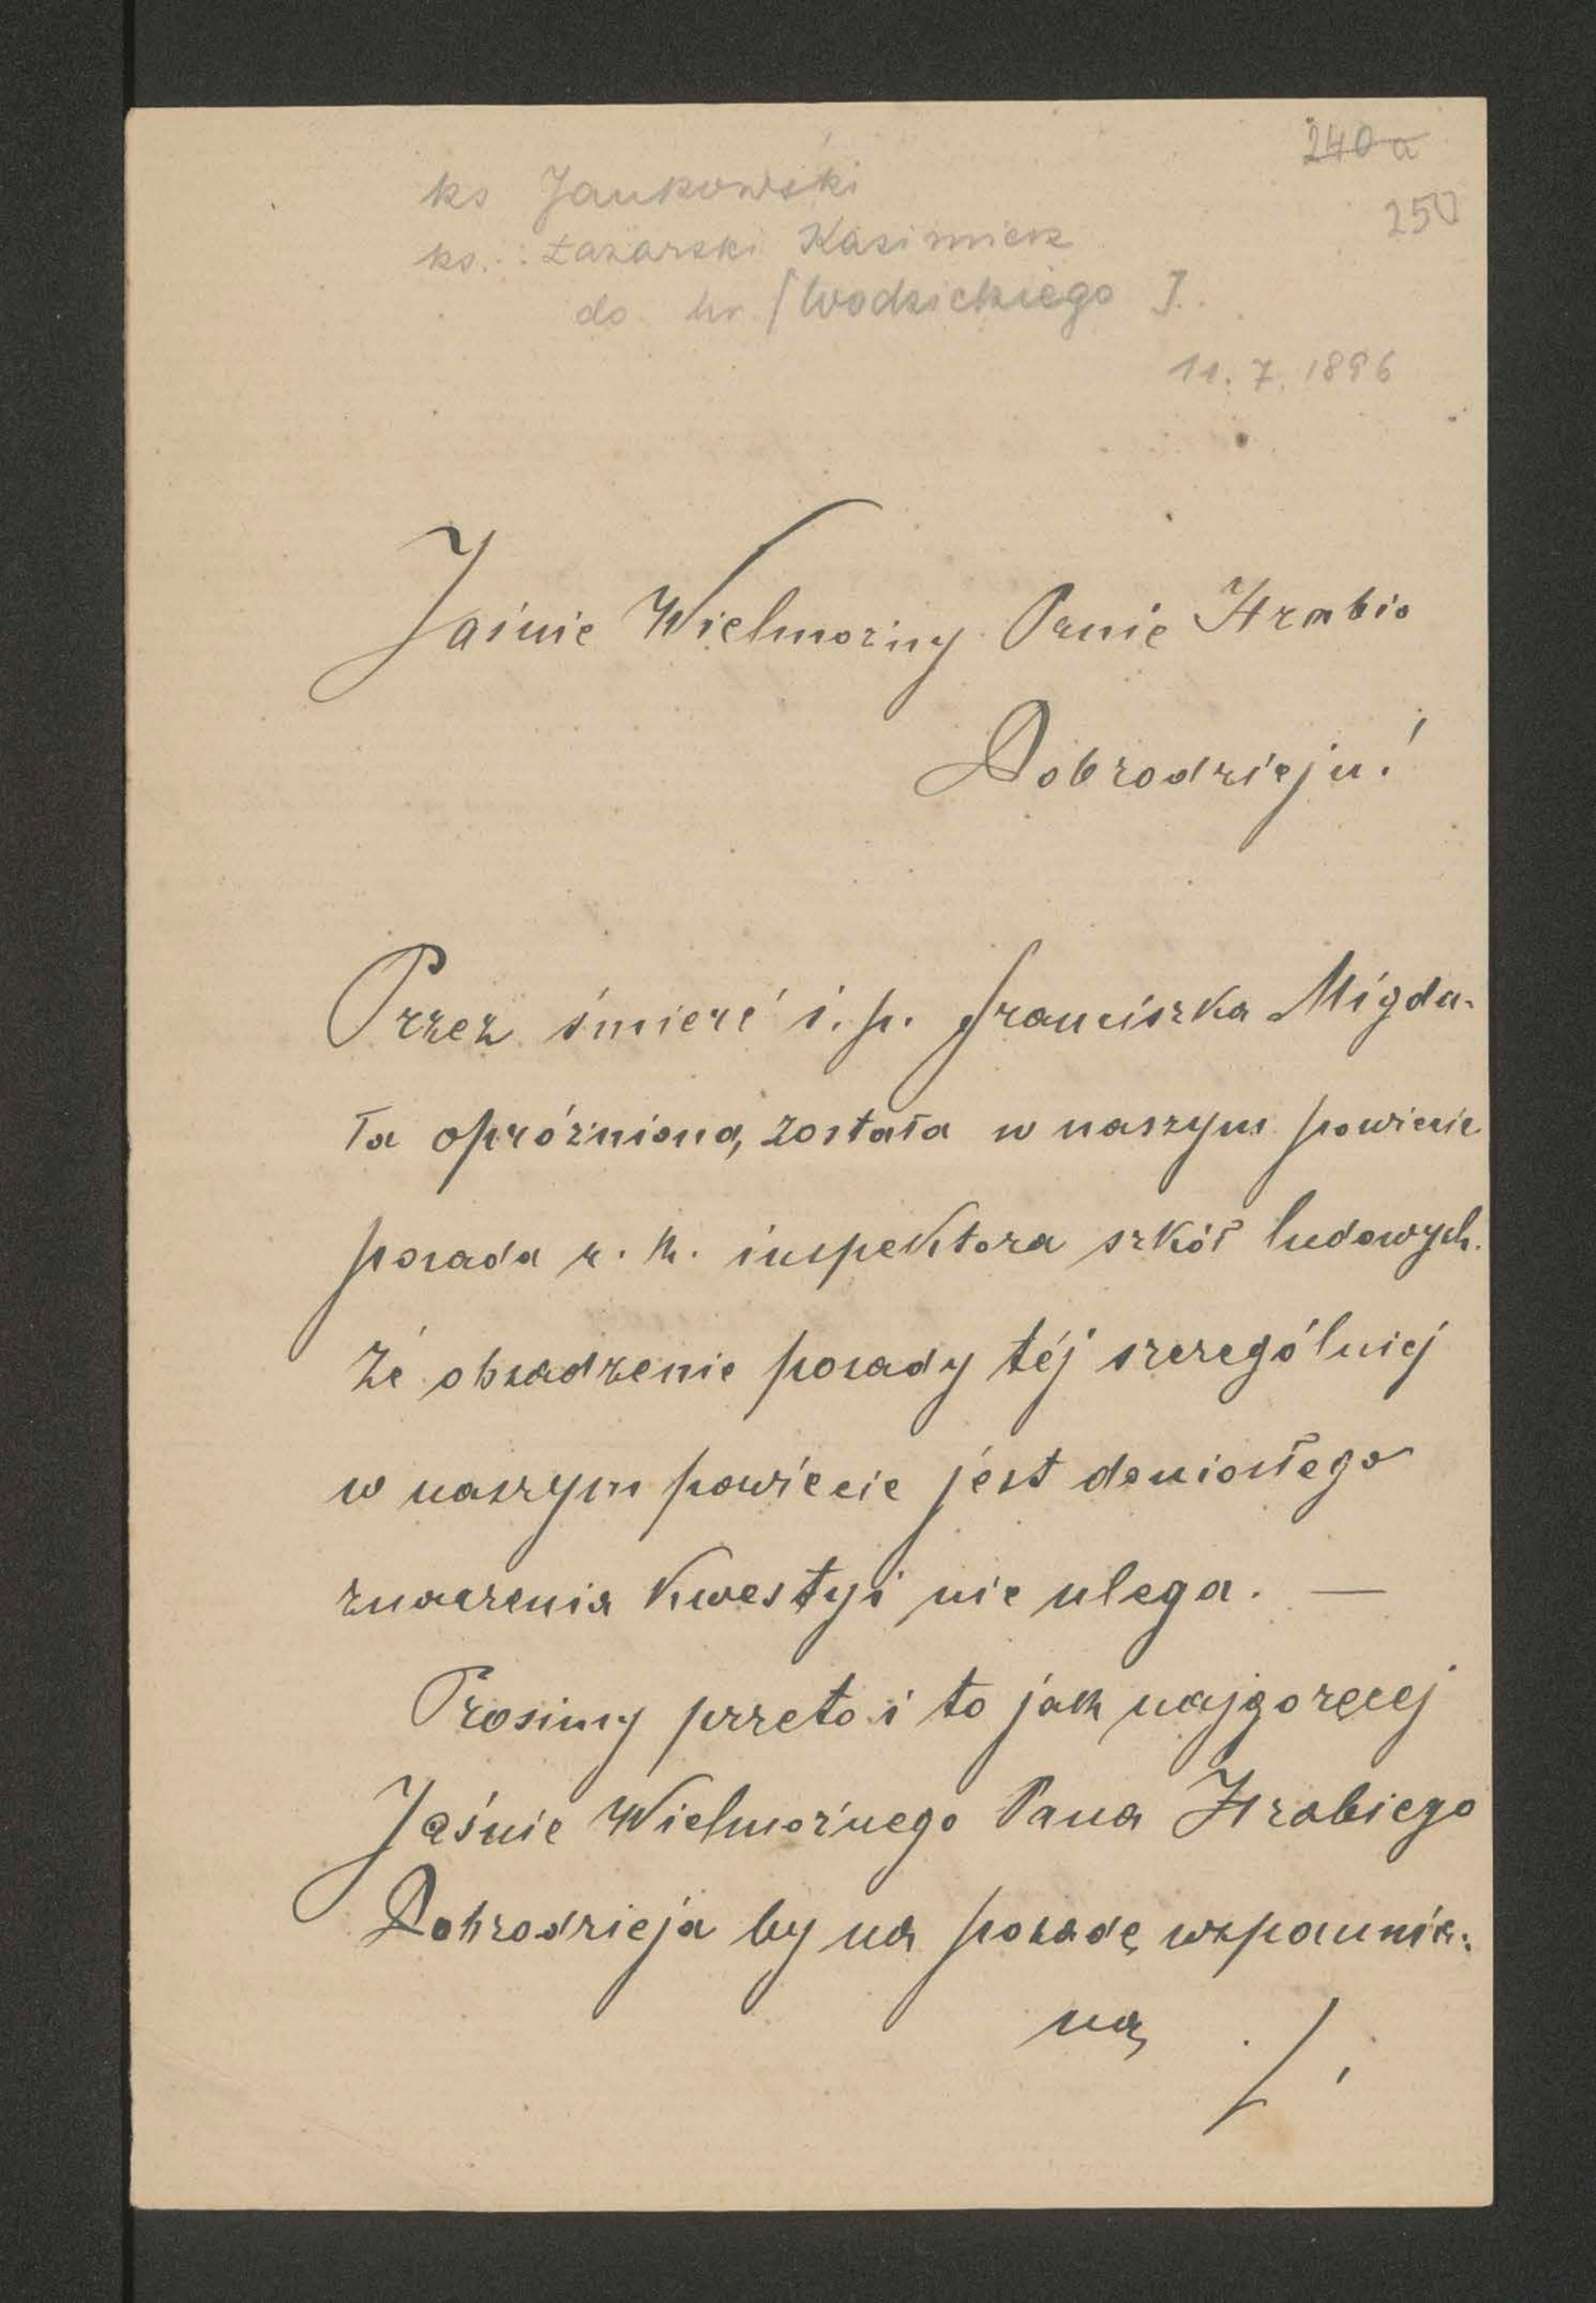 240a
250
ks Jankowski
ks. Łazarski Kazimierz
do hr. Wodzickiego J.
11. 7. 1896
Jaśnie Wielmożny Panie Hrabio
Dobrodzieju!
Przez śmierć ś. p. Franciszka Migda-
ła opróżnioną została w naszym powiecie
posada c. k. inspektora szkół ludowych.
Że obsadzenie posady téj szczególniej
w naszym powiecie jest doniosłego
znaczenia kwestyi nie ulega. —
Prosimy przeto i to jak najgoręcej
Jaśnie Wielmożnego Pana Hrabiego
Dobrodzieja by na posadę wspomnia-
ną ./.